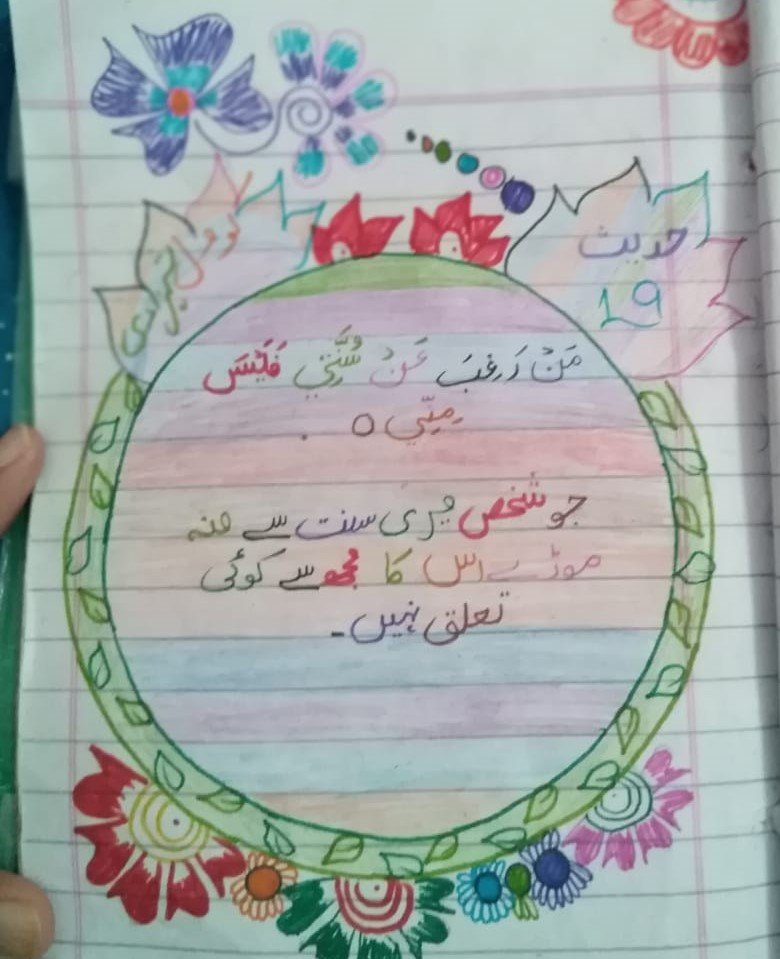 حدیث
19
مَنْ رَغِبَ عَنْ سُنَّتِي فَلَيْسَ
مِنِّي ○
جو شخص میری سنت سے منہ
موڑے اس کا مجھ سے کوئی
تعلق نہیں۔